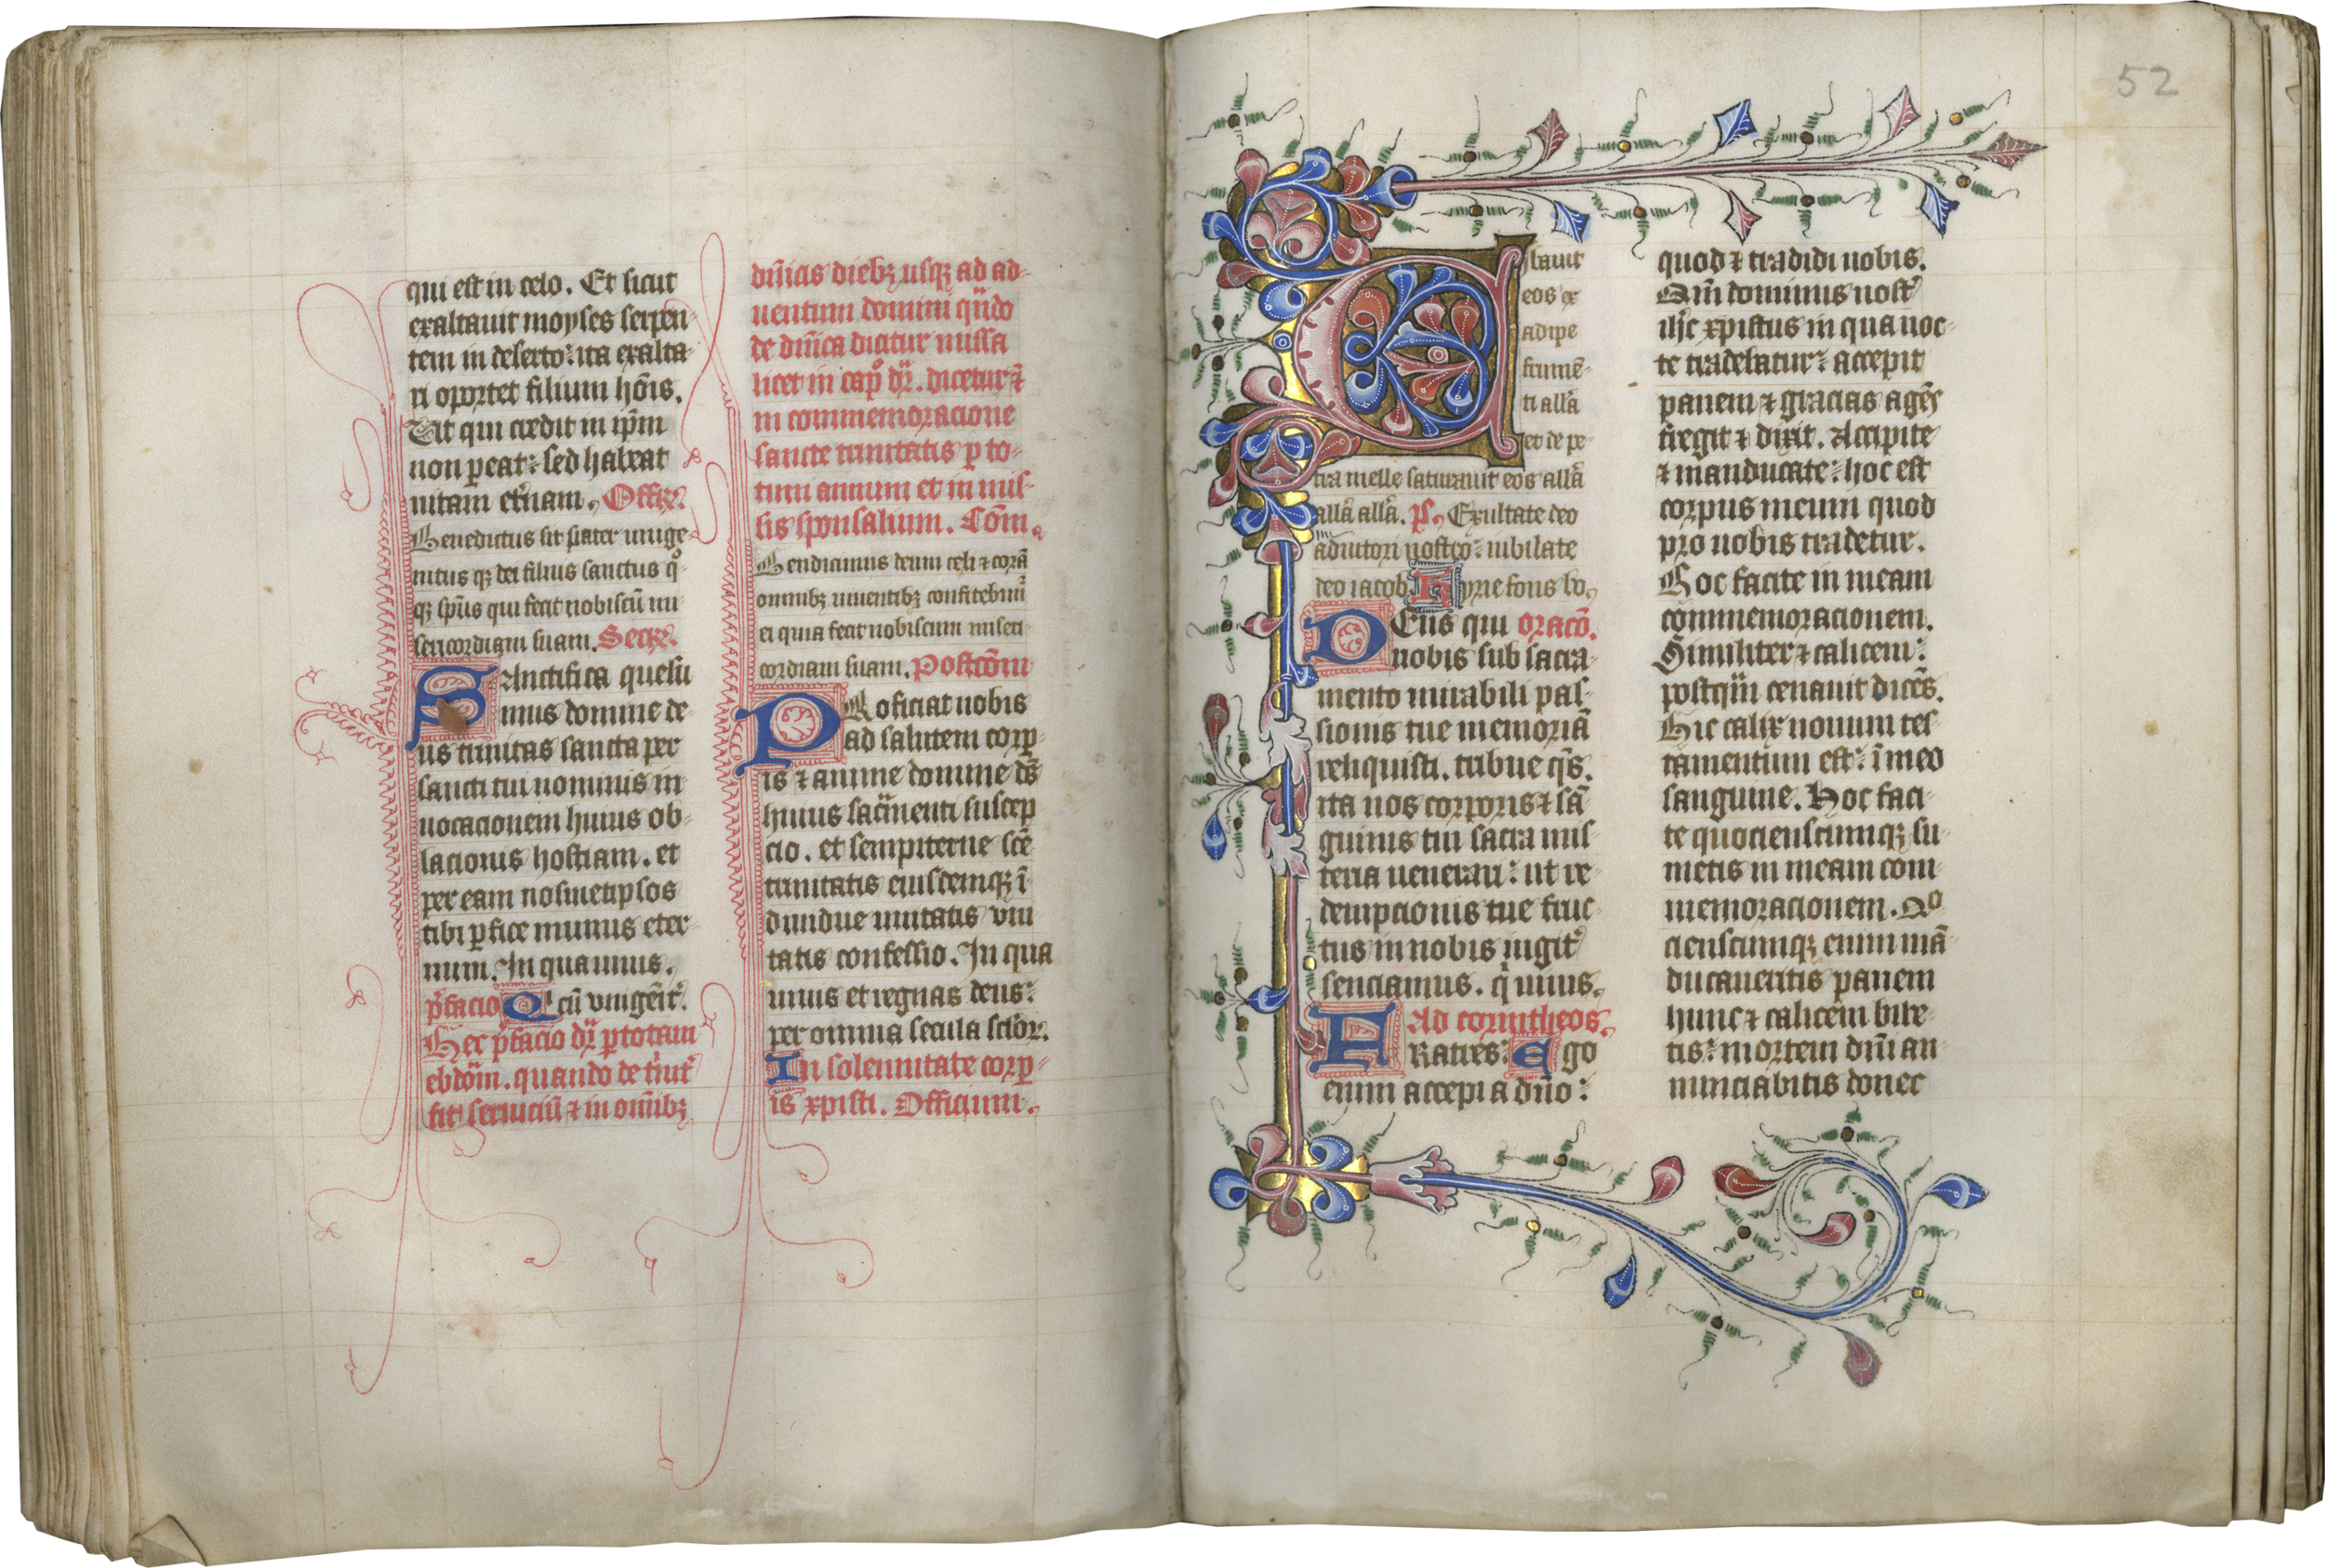 qui est in celo. Et sicut
exaltauit moyses serpen-
tem in deserto: ita exalta-
ri oportet filium hoīs.
Vt qui credit in ip̄m
non ꝑeat: sed habeat
uitam et̄nam. Offiꝝ.
Benedictus sit pater unige-
nitus qꝫ dei filius sanctus qͦ
qꝫ sp̄us quia fecit nobiscū mi-
sericordiam suam. Secꝝ.
SAnctifica quesu-
mus domine de-
us trinitas sancta per
sancti tui nominis in
uocacionem huius ob-
lacionis hostiam. et
per eam nosmetipsos
tibi ꝑfice munus eter-
num. In qua unus.
p̄facio Q cū vnigēit̄.
Hec p̄facio dr̄ ꝑ totam
ebdōm. quando de t̄nit̄
fit seruiciū ⁊ in om̄ibꝫ
dn̄icis diebꝫ usqꝫ ad ad-
uentum domini qn̄do
de dn̄ica dicitur missa
licet in cap̊ dr̄. dicetur ⁊
in commemoracione
sancte trinitatis ꝑ to-
tum annum et in mis-
sis sponsalium. Cōm.
Bendicimus deum celi ⁊ corā
omnibꝫ uiuentibꝫ confitebim̄
ei quia fecit nobiscum miseri-
cordiam suam. Postcōm
PRoficiat nobis
ad salutem corꝑ-
is ⁊ anime domine ds̄
huius sac̄menti suscep
cio. et sempiterne sc̄e
trinitatis eiusdemqꝫ ī
diuidue unitatis vni
tatis confessio. In qua
unus et regnas deus:
per omnia secula sc̄loꝝ.
In solennitate corꝑ-
is xpisti. Officium.
52
Cibauit
eos ex
adipe
frumē-
ti allā
et de pe-
tra melle saturauit eos allā
allā allā. ps. Exultate deo
adiutori nostro: iubilate
deo iacob. Kyrie fons bo.
DEus qui oracō.
nobis sub sacra-
mento mirabili pas-
sionis tue memoriā
reliquisti. tribue qs̄.
ita nos corporis ⁊ sā-
guinis tui sacra mis-
teria uenerari: ut re-
dempcionis tue fruc-
tus in nobis iugit̄
senciamus. q̇ uiuis.
Ad corintheos.
FRatres: Ego
enim accepi a dn̄o:
quod ⁊ tradidi uobis.
Qm̄ dominus nost̄
ih̄c xpistus in qua noc-
te tradebatur: accepit
panem ⁊ gracias agēs
fregit ⁊ dixit. Accipite
⁊ manducate: hoc est
corpus meum quod
pro uobis tradetur.
Hoc facite in meam
commemoracionem.
Similiter ⁊ calicem:
postqm̄ cenauit dicēs.
Hic calix nouum tes-
tamentum est: ī meo
sanguine. Hoc faci-
te quocienscumqꝫ su-
metis in meam com-
memoracionem. Qo-
cienscumqꝫ enim mā-
ducaueritis panem
hunc ⁊ calicem bibe-
tis: mortem dn̄i an-
nunciabitis donec